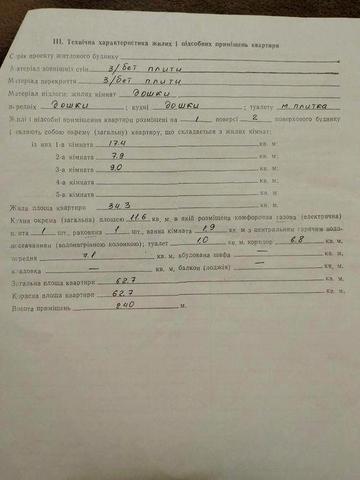 III. Технічна характеристика жилих і підсобних приміщень квартири
Серія проекту житлового будинку
Матеріал зовнішніх стін З/бет плити
Матеріал перекриття З/бет плити
Матеріал підлоги: жилих кімнат дошки
передніх дошки; кухні дошки; туалету м. плитка
Жилі і підсобні приміщення квартири розміщені на 1 поверсі 2 поверхового будинку
і являють собою окрему (загальну) квартиру, що складається з жилих кімнат:
із них 1-а кімната 17.4 кв. м;
2-а кімната 7.9 кв. м;
3-а кімната 9.0 кв. м;
4-а кімната кв. м;
5-а кімната кв. м;
Жила площа квартири 34.3 кв. м;
Кухня окрема (загальна) площею 11.6 кв. м, в якій розміщена комфорочна газова (електрична)
плита 1 шт., раковина 1 шт., ванна кімната 1.9 кв. м з центральним гарячим водо-
постачанням (водонагрівною колонкою); туалет 1.0 кв. м, коридор 6.8 кв. м,
передня 7.1 кв. м, вбудована шафа — кв. м,
кладовка — кв. м, балкон (лоджія) — кв. м.
Загальна площа квартири 62.7 кв. м,
Корисна площа квартири 62.7 кв. м,
Висота приміщень 2.40 м.